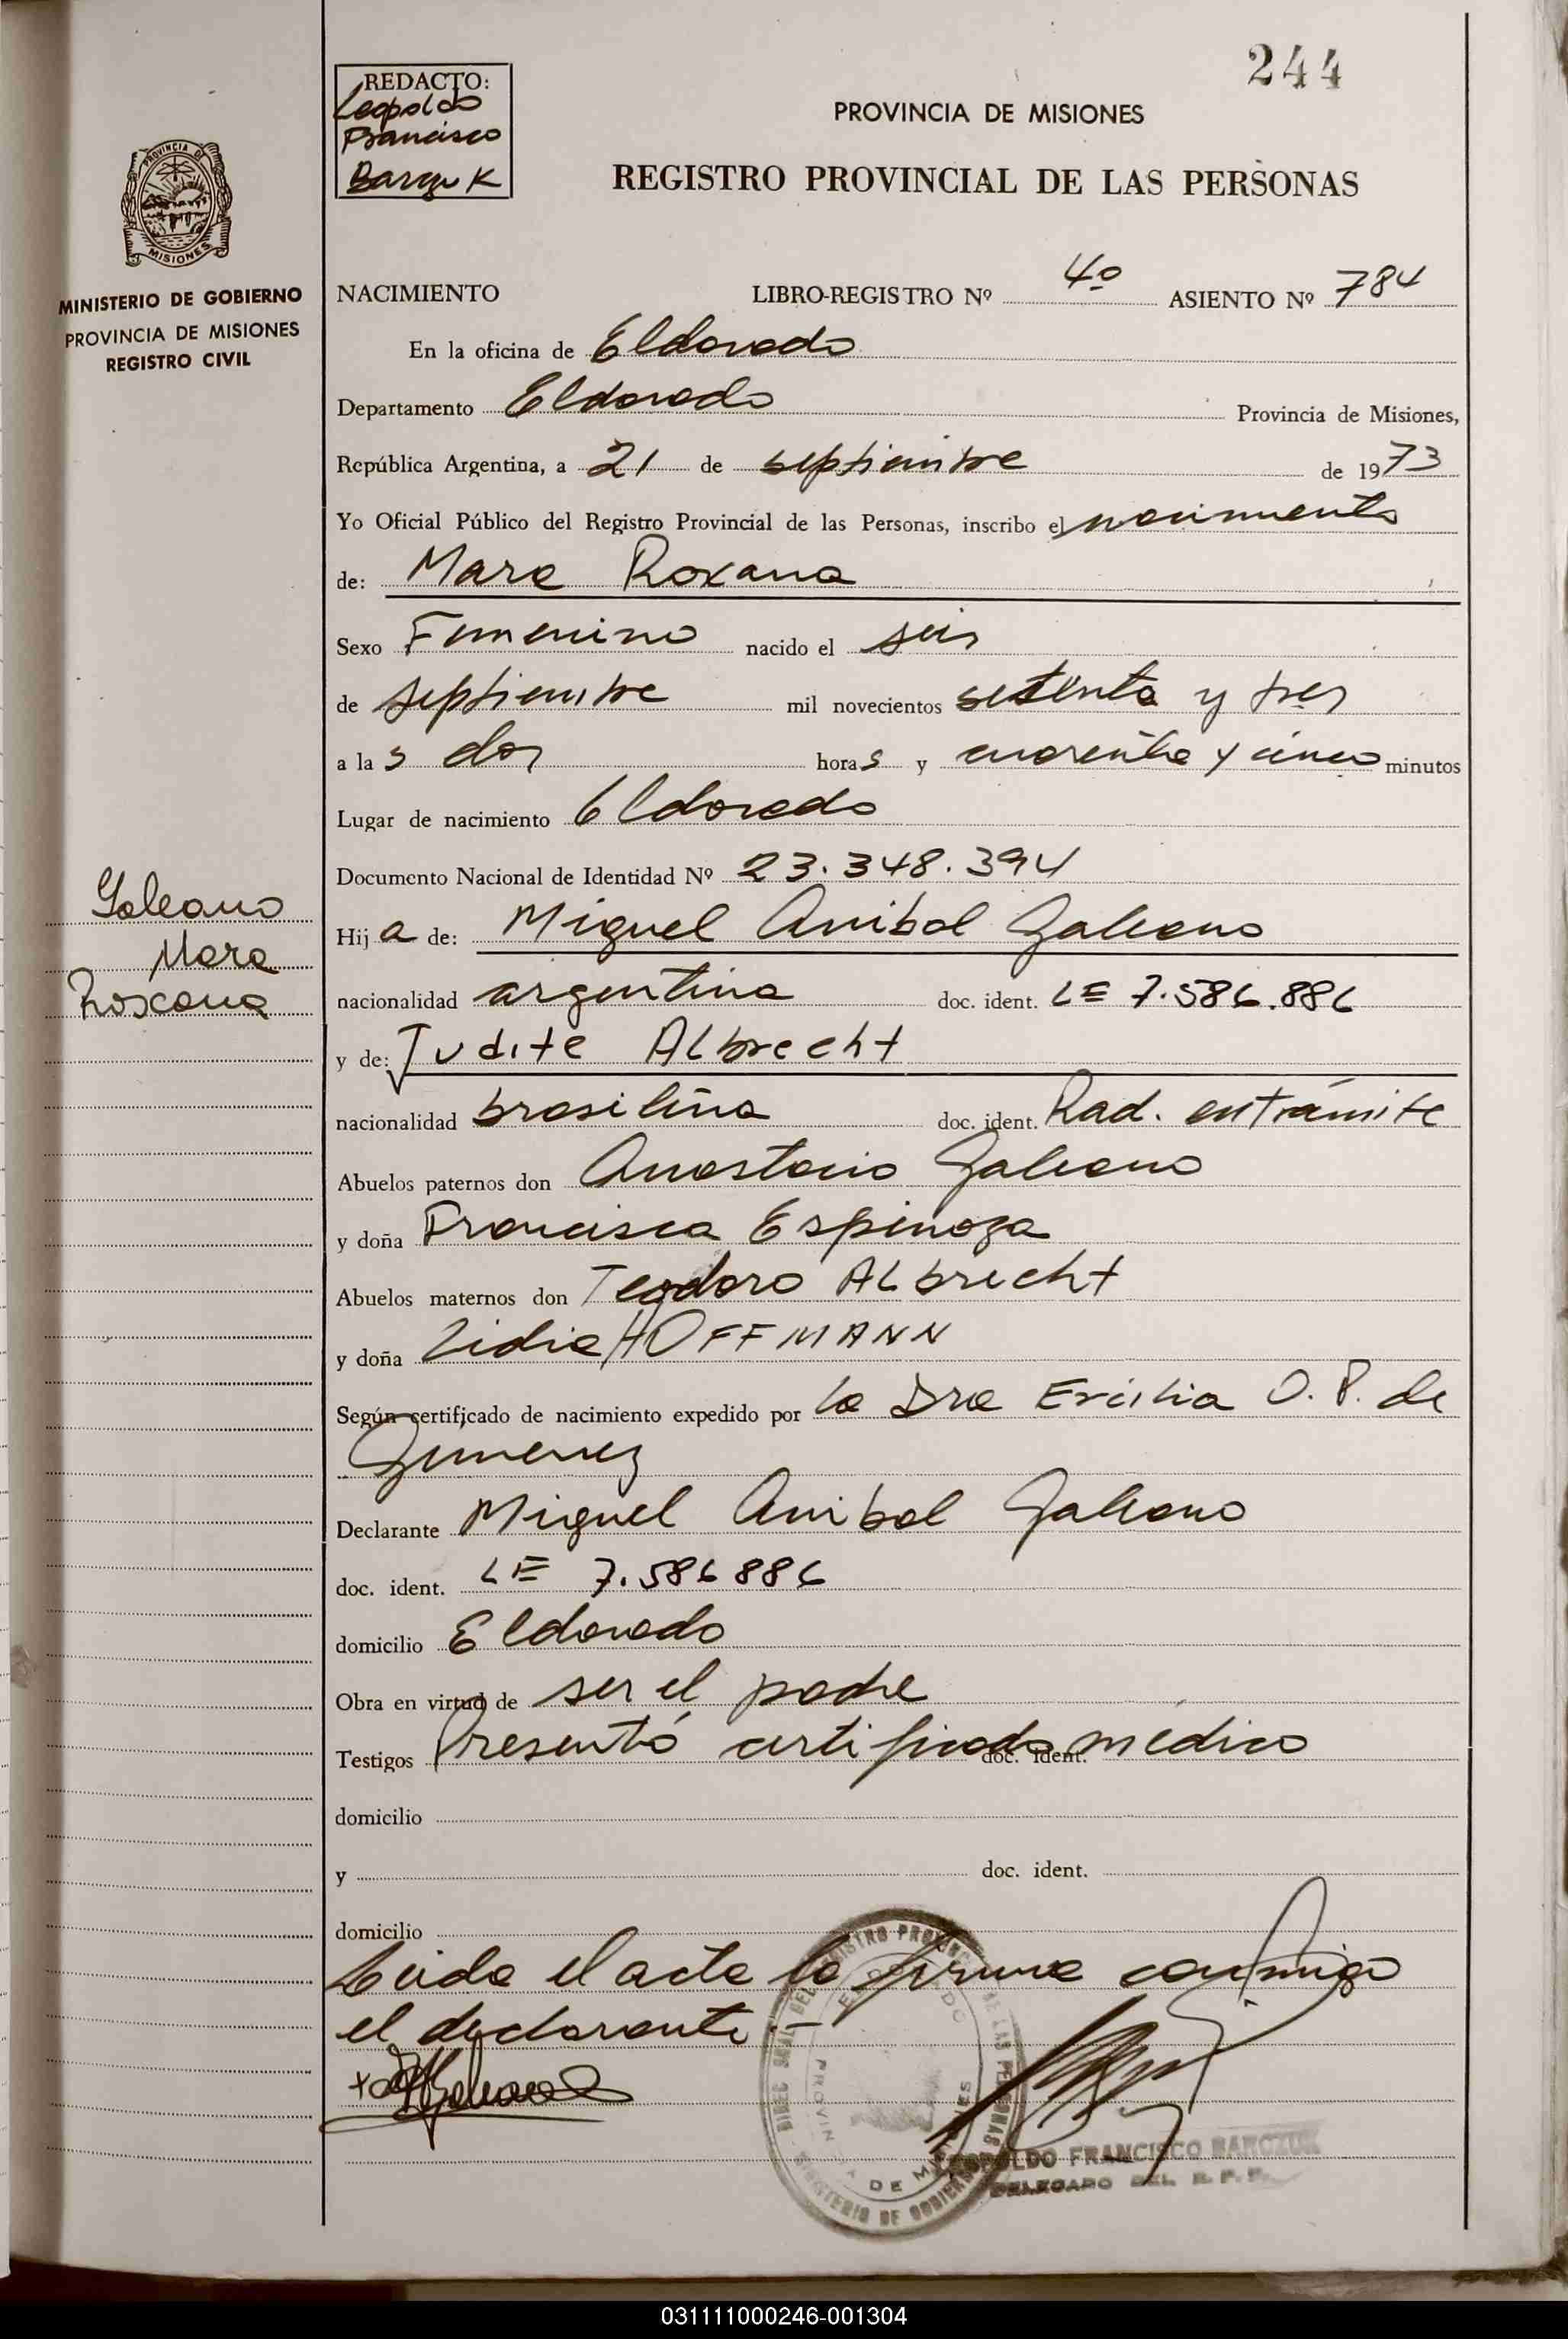 244
REDACTO:
Leopoldo
Francisco
Barczuk
PROVINCIA DE MISIONES
REGISTRO PROVINCIAL DE LAS PERSONAS
PROVINCIA DE
MISIONES
MINISTERIO DE GOBIERNO
PROVINCIA DE MISIONES
REGISTRO CIVIL
NACIMIENTO LIBRO-REGISTRO Nº 4º ASIENTO Nº 784
En la oficina de Eldorado
Departamento Eldorado Provincia de Misiones,
República Argentina, a 21 de septiembre de 1973
Yo Oficial Público del Registro Provincial de las Personas, inscribo el nacimiento
de: Mara Roxana
Sexo Femenino nacido el seis
de septiembre mil novecientos setenta y tres
a las dos horas y cuarenta y cinco minutos
Lugar de nacimiento Eldorado
Documento Nacional de Identidad Nº 23.348.394
Galeano
Mara
Roxana
Hija de: Miguel Anibal Galeano
nacionalidad argentina doc. ident. LE 7.586.886
y de: Judite Albrecht
nacionalidad brasileña doc. ident. Rad. en trámite
Abuelos paternos don Anastacio Galeano
y doña Francisca Espinoza
Abuelos maternos don Teodoro Albrecht
y doña Lidia HOFFMANN
Según certificado de nacimiento expedido por la Dra Ercilia O. P. de
Gimenez
Declarante Miguel Anibal Galeano
doc. ident. LE 7.586886
domicilio Eldorado
Obra en virtud de ser el padre
Testigos Presentó certificado médico doc. ident.
domicilio
y doc. ident.
domicilio
Leida el acta la firma conmigo
el declarante.-
LEOPOLDO FRANCISCO BARCZUK
DELEGADO DEL R. P. P.
031111000246-001304